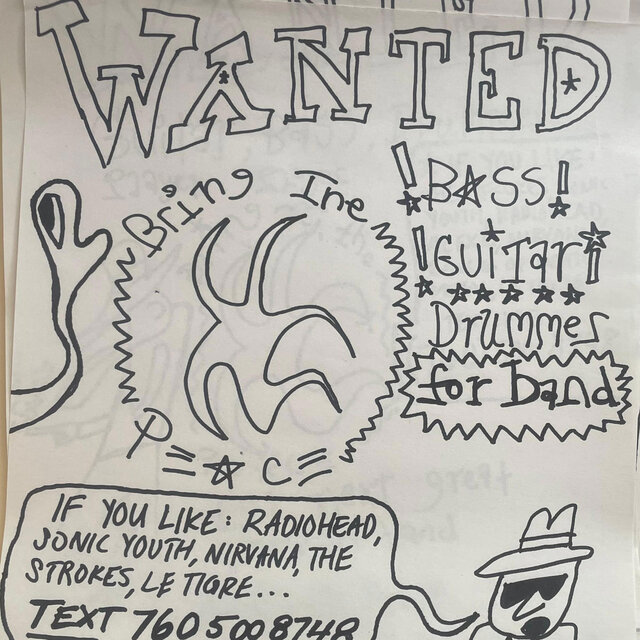 WANTED
Bring The
PEACE
!BASS!
!GUITAR!
Drummer
for band
IF YOU LIKE: RADIOHEAD,
SONIC YOUTH, NIRVANA, THE
STROKES, LE TIGRE...
TEXT 760 500 8748